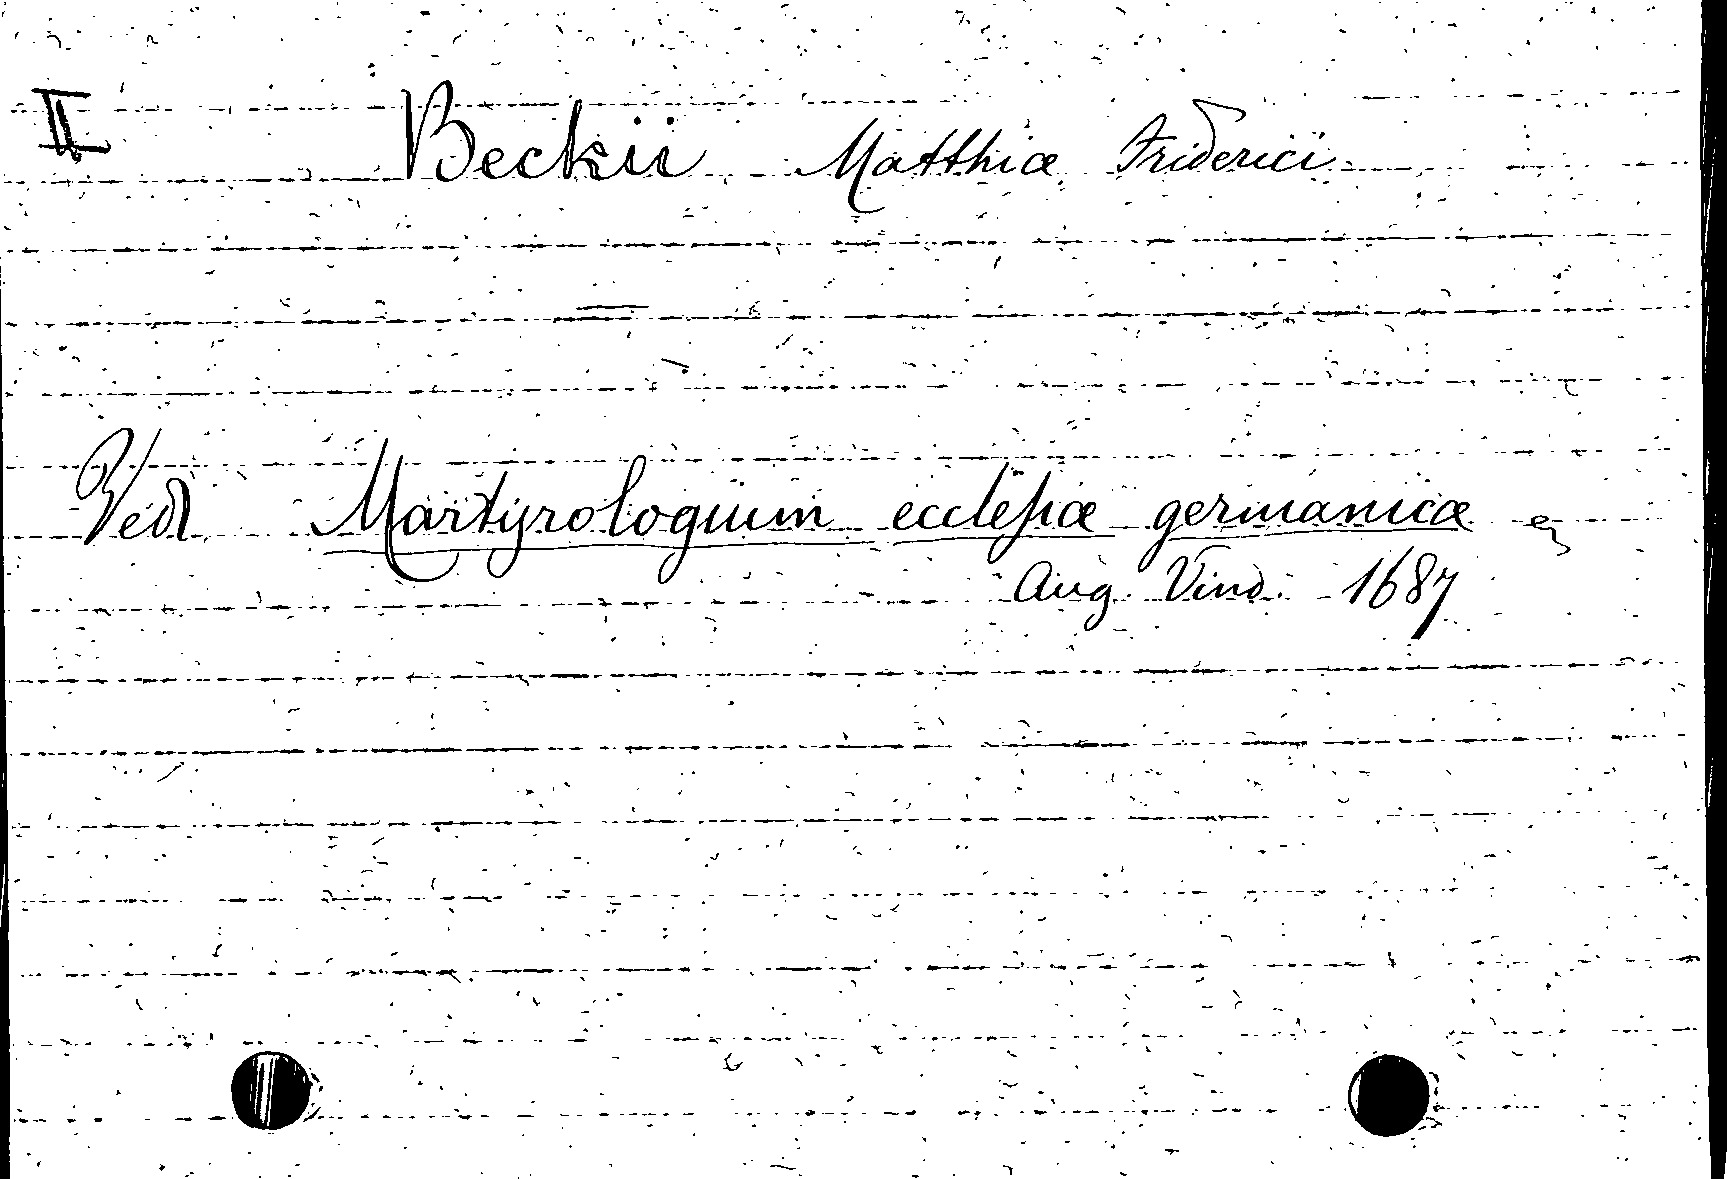 II Beckii Matthiæ Friderici
Ved. Martyrologium ecclesiæ germanicæ
Aug. Vind. 1687